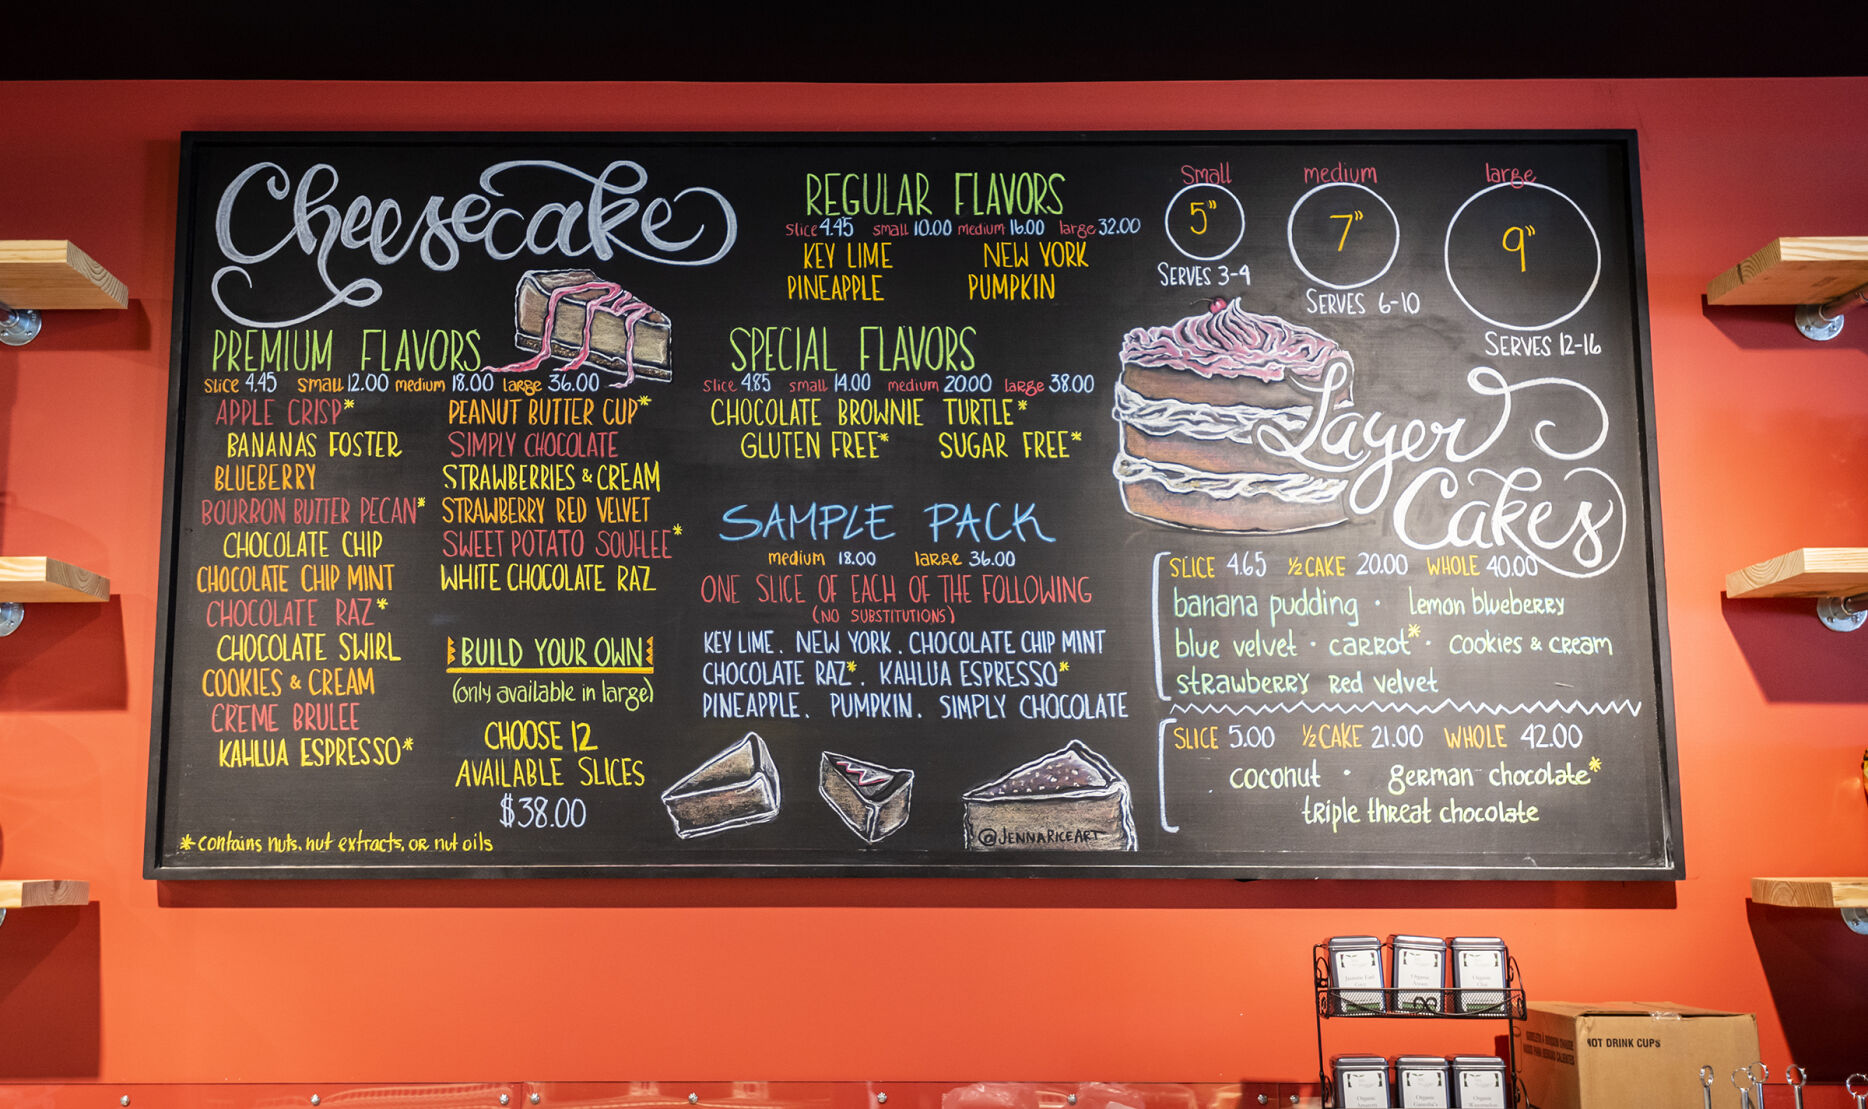 Cheesecake
PREMIUM FLAVORS
slice 4.45 small 12.00 medium 18.00 large 36.00
APPLE CRISP*
BANANAS FOSTER
BLUEBERRY
BOURBON BUTTER PECAN*
CHOCOLATE CHIP
CHOCOLATE CHIP MINT
CHOCOLATE RAZ*
CHOCOLATE SWIRL
COOKIES & CREAM
CRÈME BRULEE
KAHLUA ESPRESSO*
PEANUT BUTTER CUP*
SIMPLY CHOCOLATE
STRAWBERRIES & CREAM
STRAWBERRY RED VELVET
SWEET POTATO SOUFLEE*
WHITE CHOCOLATE RAZ
BUILD YOUR OWN
(only available in large)
CHOOSE 12
AVAILABLE SLICES
$38.00
*contains nuts, nut extracts, or nut oils
REGULAR FLAVORS
slice 4.45 small 10.00 medium 16.00 large 32.00
KEY LIME NEW YORK
PINEAPPLE PUMPKIN
SPECIAL FLAVORS
slice 4.85 small 14.00 medium 20.00 large 38.00
CHOCOLATE BROWNIE TURTLE*
GLUTEN FREE* SUGAR FREE*
SAMPLE PACK
medium 18.00 large 36.00
ONE SLICE OF EACH OF THE FOLLOWING
(NO SUBSTITUTIONS)
KEY LIME. NEW YORK. CHOCOLATE CHIP MINT
CHOCOLATE RAZ*. KAHLUA ESPRESSO*
PINEAPPLE. PUMPKIN. SIMPLY CHOCOLATE
@JENNARICEART
small medium large
5" 7" 9"
SERVES 3-4
SERVES 6-10
SERVES 12-16
Layer
Cakes
SLICE 4.65 ½ CAKE 20.00 WHOLE 40.00
banana pudding · lemon blueberry
blue velvet · carrot* · cookies & cream
strawberry red velvet
SLICE 5.00 ½ CAKE 21.00 WHOLE 42.00
coconut · german chocolate*
triple threat chocolate
HOT DRINK CUPS
Organic
Organic
Organic
Organic
Organic